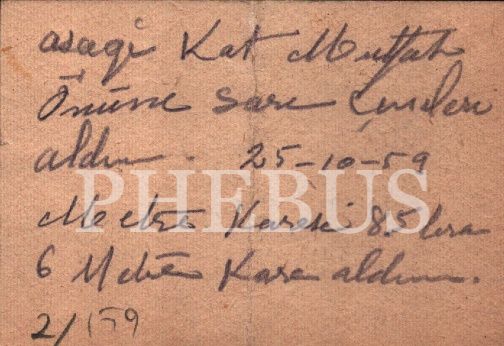 aşagi Kat Mutfak
Önüne sarı Çinileri
aldım. 25-10-59
PHEBUS
Metre Karesi 85 lira
6 Metre Kare aldım.
2/159